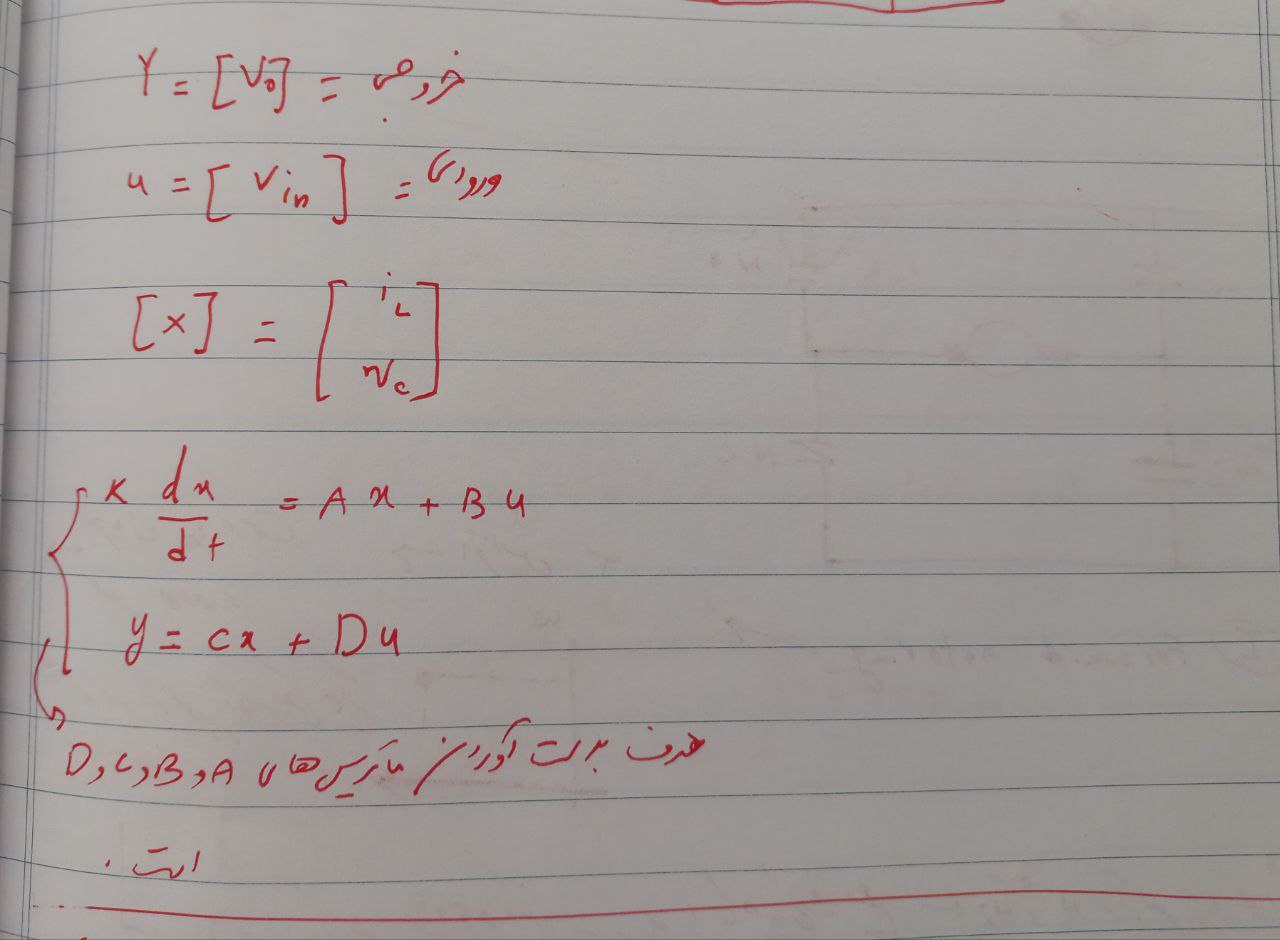 Y = [V₀] = خروجی
u = [Vin] = ورودی
[x] = [iL
vc]
K dx/dt = Ax + Bu
y = cx + Du
هدف بدست آوردن ماتریس های A, B, C, D
است.